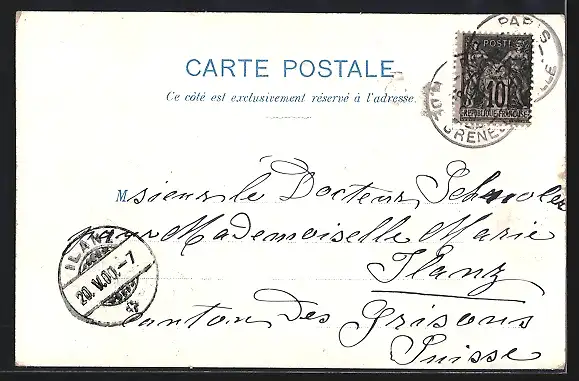 CARTE POSTALE
Ce côté est exclusivement réservé à l'adresse.
PARIS
R. DE GRENELLE
POSTES
10
REPUBLIQUE FRANCAISE
Msieur le Docteur
pour Mademoiselle Marie
Ilanz
Canton des Grisons
Suisse
ILANZ
20.V.00.-7